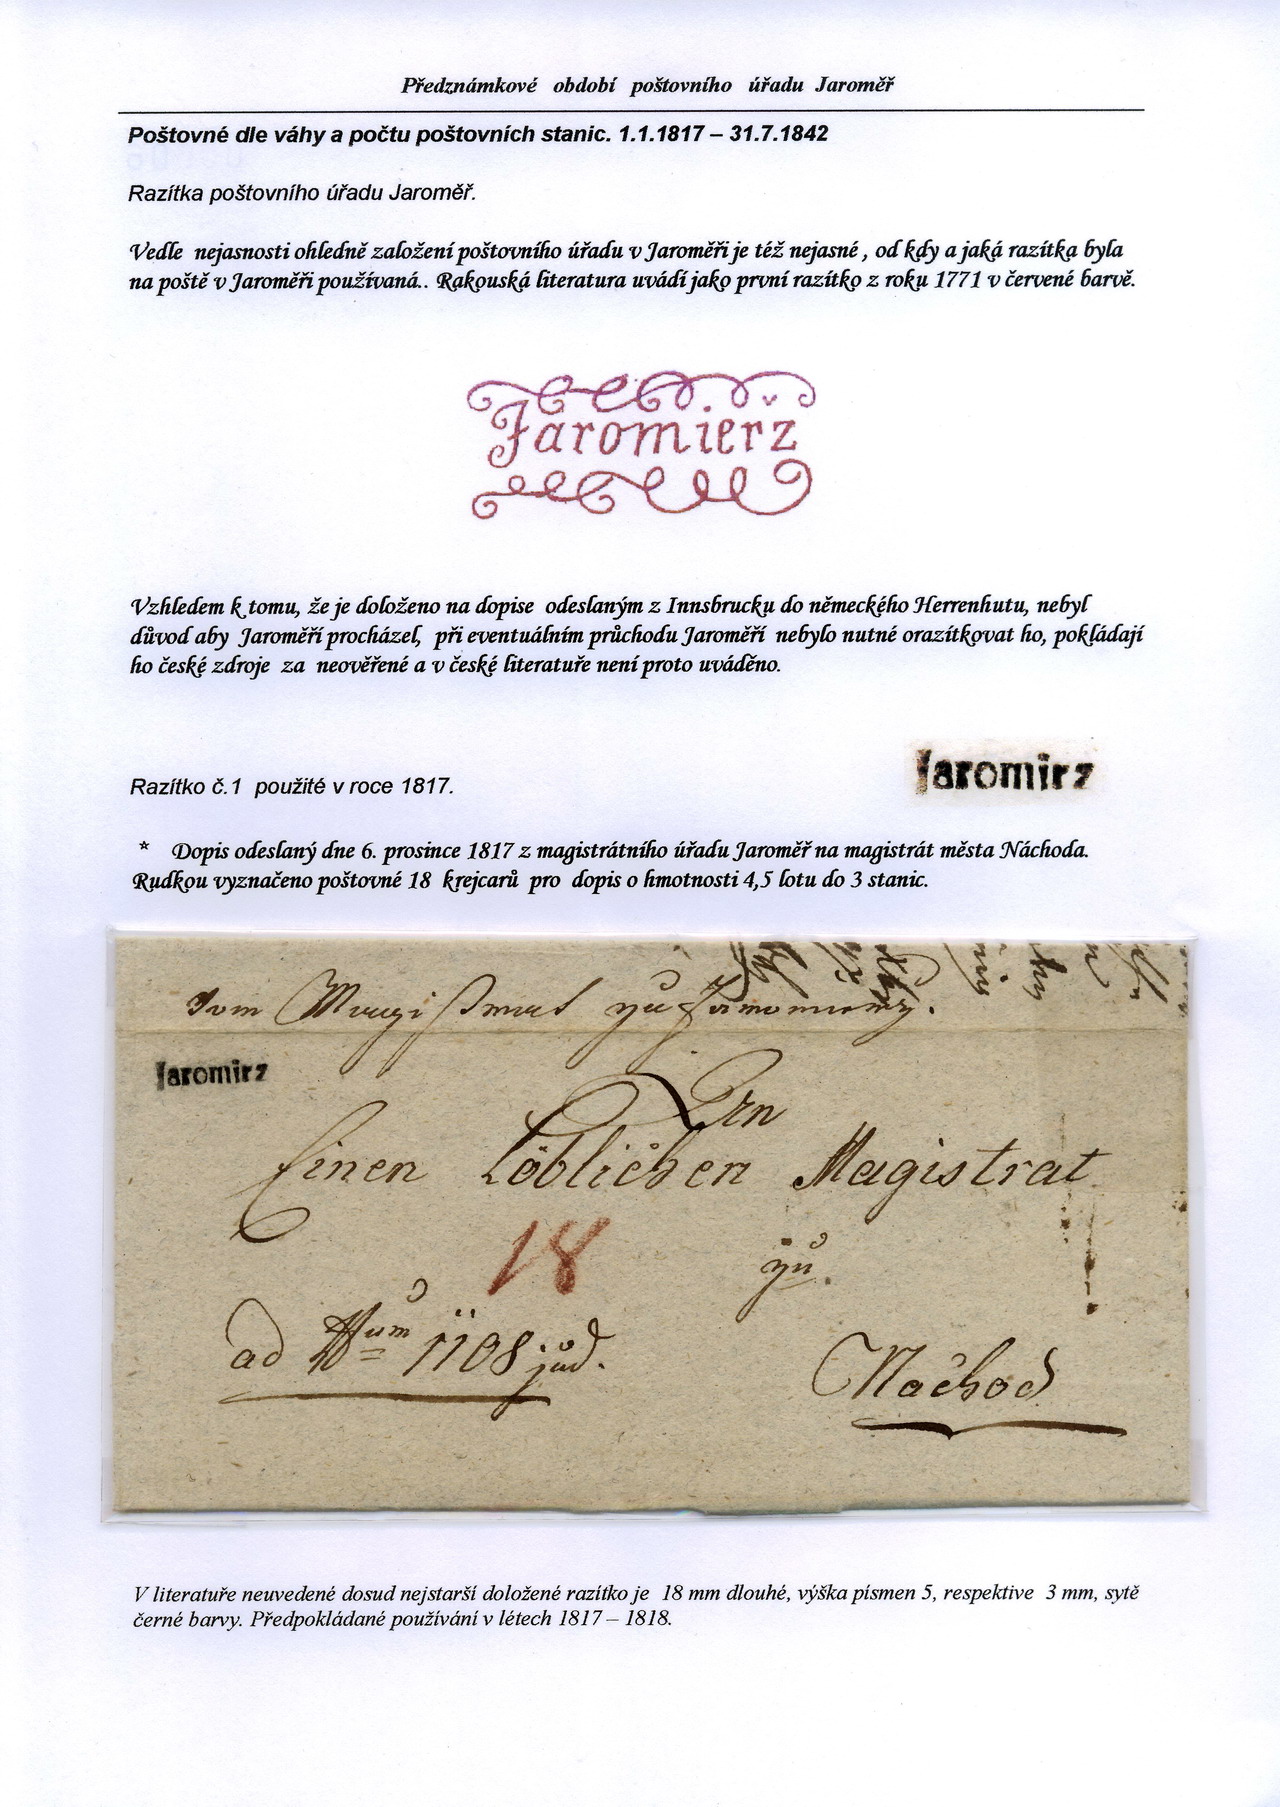 Předznámkové období poštovního úřadu Jaroměř
Poštovné dle váhy a počtu poštovních stanic. 1.1.1817 – 31.7.1842
Razítka poštovního úřadu Jaroměř.
Vedle nejasnosti ohledně založení poštovního úřadu v Jaroměři je též nejasné , od kdy a jaká razítka byla
na poště v Jaroměři používaná.. Rakouská literatura uvádí jako první razítko z roku 1771 v červené barvě.
Jaromierž
Vzhledem k tomu, že je doloženo na dopise odeslaným z Innsbrucku do německého Herrenhutu, nebyl
důvod aby Jaroměří procházel, při eventuálním průchodu Jaroměří nebylo nutné orazítkovat ho, pokládají
ho české zdroje za neověřené a v české literatuře není proto uváděno.
Jaromirz
Razítko č.1 použité v roce 1817.
* Dopis odeslaný dne 6. prosince 1817 z magistrátního úřadu Jaroměř na magistrát města Náchoda.
Rudkou vyznačeno poštovné 18 krejcarů pro dopis o hmotnosti 4,5 lotu do 3 stanic.
Vom Magistrat zu
Jaromirz
Einen Löblichen Magistrat
18
zu
ad 1108 jud.
Nachod
V literatuře neuvedené dosud nejstarší doložené razítko je 18 mm dlouhé, výška písmen 5, respektive 3 mm, sytě
černé barvy. Předpokládané používání v létech 1817 – 1818.